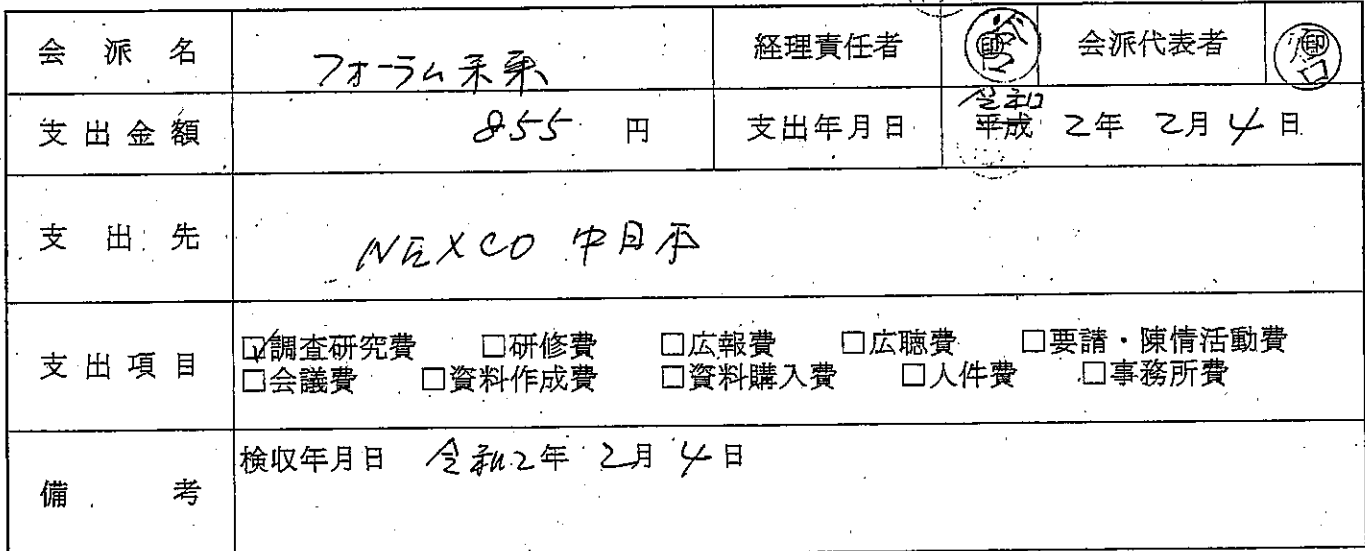 会派名 フォーラム未来 経理責任者 印 会派代表者 印
支出金額 855 円 支出年月日 令和 平成 2年 2月 4日
支出先 NEXCO 中日本
支出項目 ☑調査研究費 □研修費 □広報費 □広聴費 □要請・陳情活動費
□会議費 □資料作成費 □資料購入費 □人件費 □事務所費
備考 検収年月日 令和2年 2月 4日